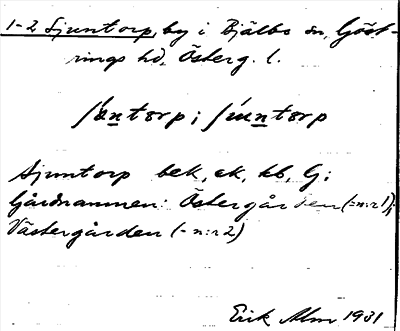 1-2 Sjuntorp, by i Bjälbo sn, Göst-
rings hd, Österg. l.
ʃúntorp; ʃúuntorp
Sjuntorp bek, ek, kb, G;
Gårdnamnen: Östergården (= n:r 1),
Västergården (= n:r 2)
Erik Alm 1931